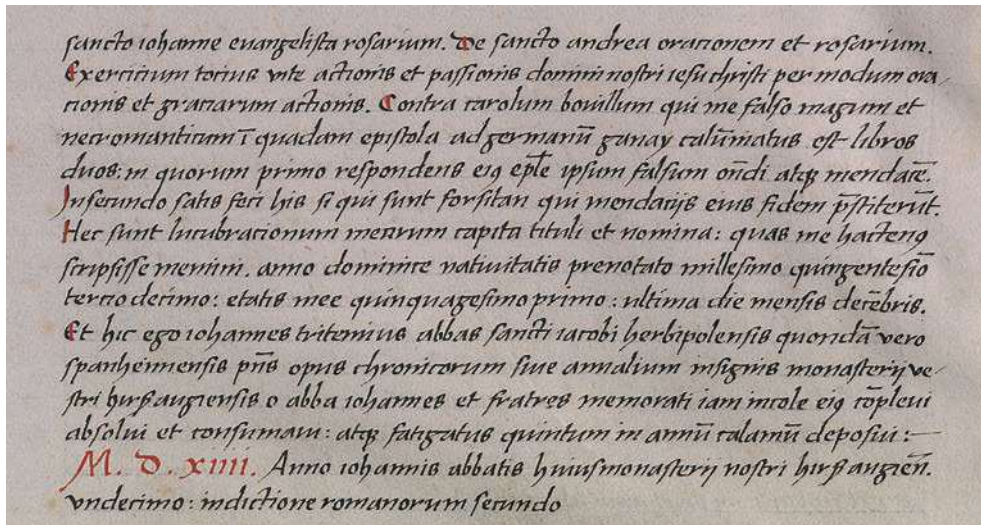 sancto iohanne euangelista rosarium. De sancto andrea orationem et rosarium.
Exercitium totius vite actionis et passionis domini nostri iesu christi per modum ora-
tionis et gratiarum actionis. Contra carolum bouillum qui me falso magum et
necromanticum ī quadam epistola ad germanū ganay calūmatus est libros
duos: in quorum primo respondens eiꝯ ep̄le ipsum falsum on̄di atqꝫ mendacē.
In secundo satis feci his si qui sunt forsitan qui mendacijs eius fidem p̄stiterūt.
Hec sunt lucubrationum mearum capita tituli et nomina: quas me hactenꝯ
scripsisse memini. anno dominice natiuitatis prenotato millesimo quingentesīo
tercio decimo: etatis mee quinquagesimo primo: ultima die mensis decēbris.
Et hic ego iohannes tritemius abbas sancti iacobi herbipolensis quondā vero
spanheimensis pn̄s opus chronicorum siue annalium insignis monasterij ve-
stri hirsaugiensis o abba iohannes et fratres memorati iam incole eiꝯ cōpleui
absolui et consumaui: atqꝫ fatigatus quintum in annū calamū deposui:
M. D. xiiii. Anno iohannis abbatis huius monasterij nostri hirsaugien̄.
vndecimo: indictione romanorum secundo